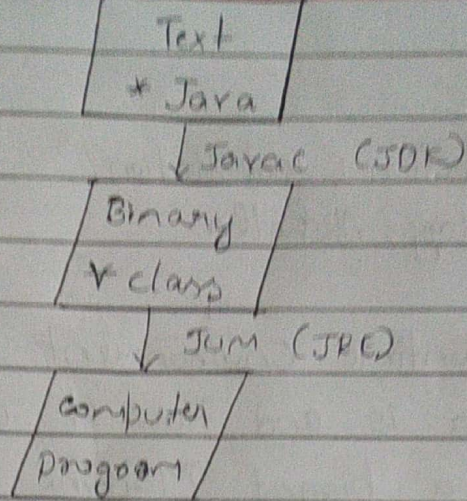 Text
* Java
Javac (JDK)
Binary
* class
JVM (JRE)
computer
program